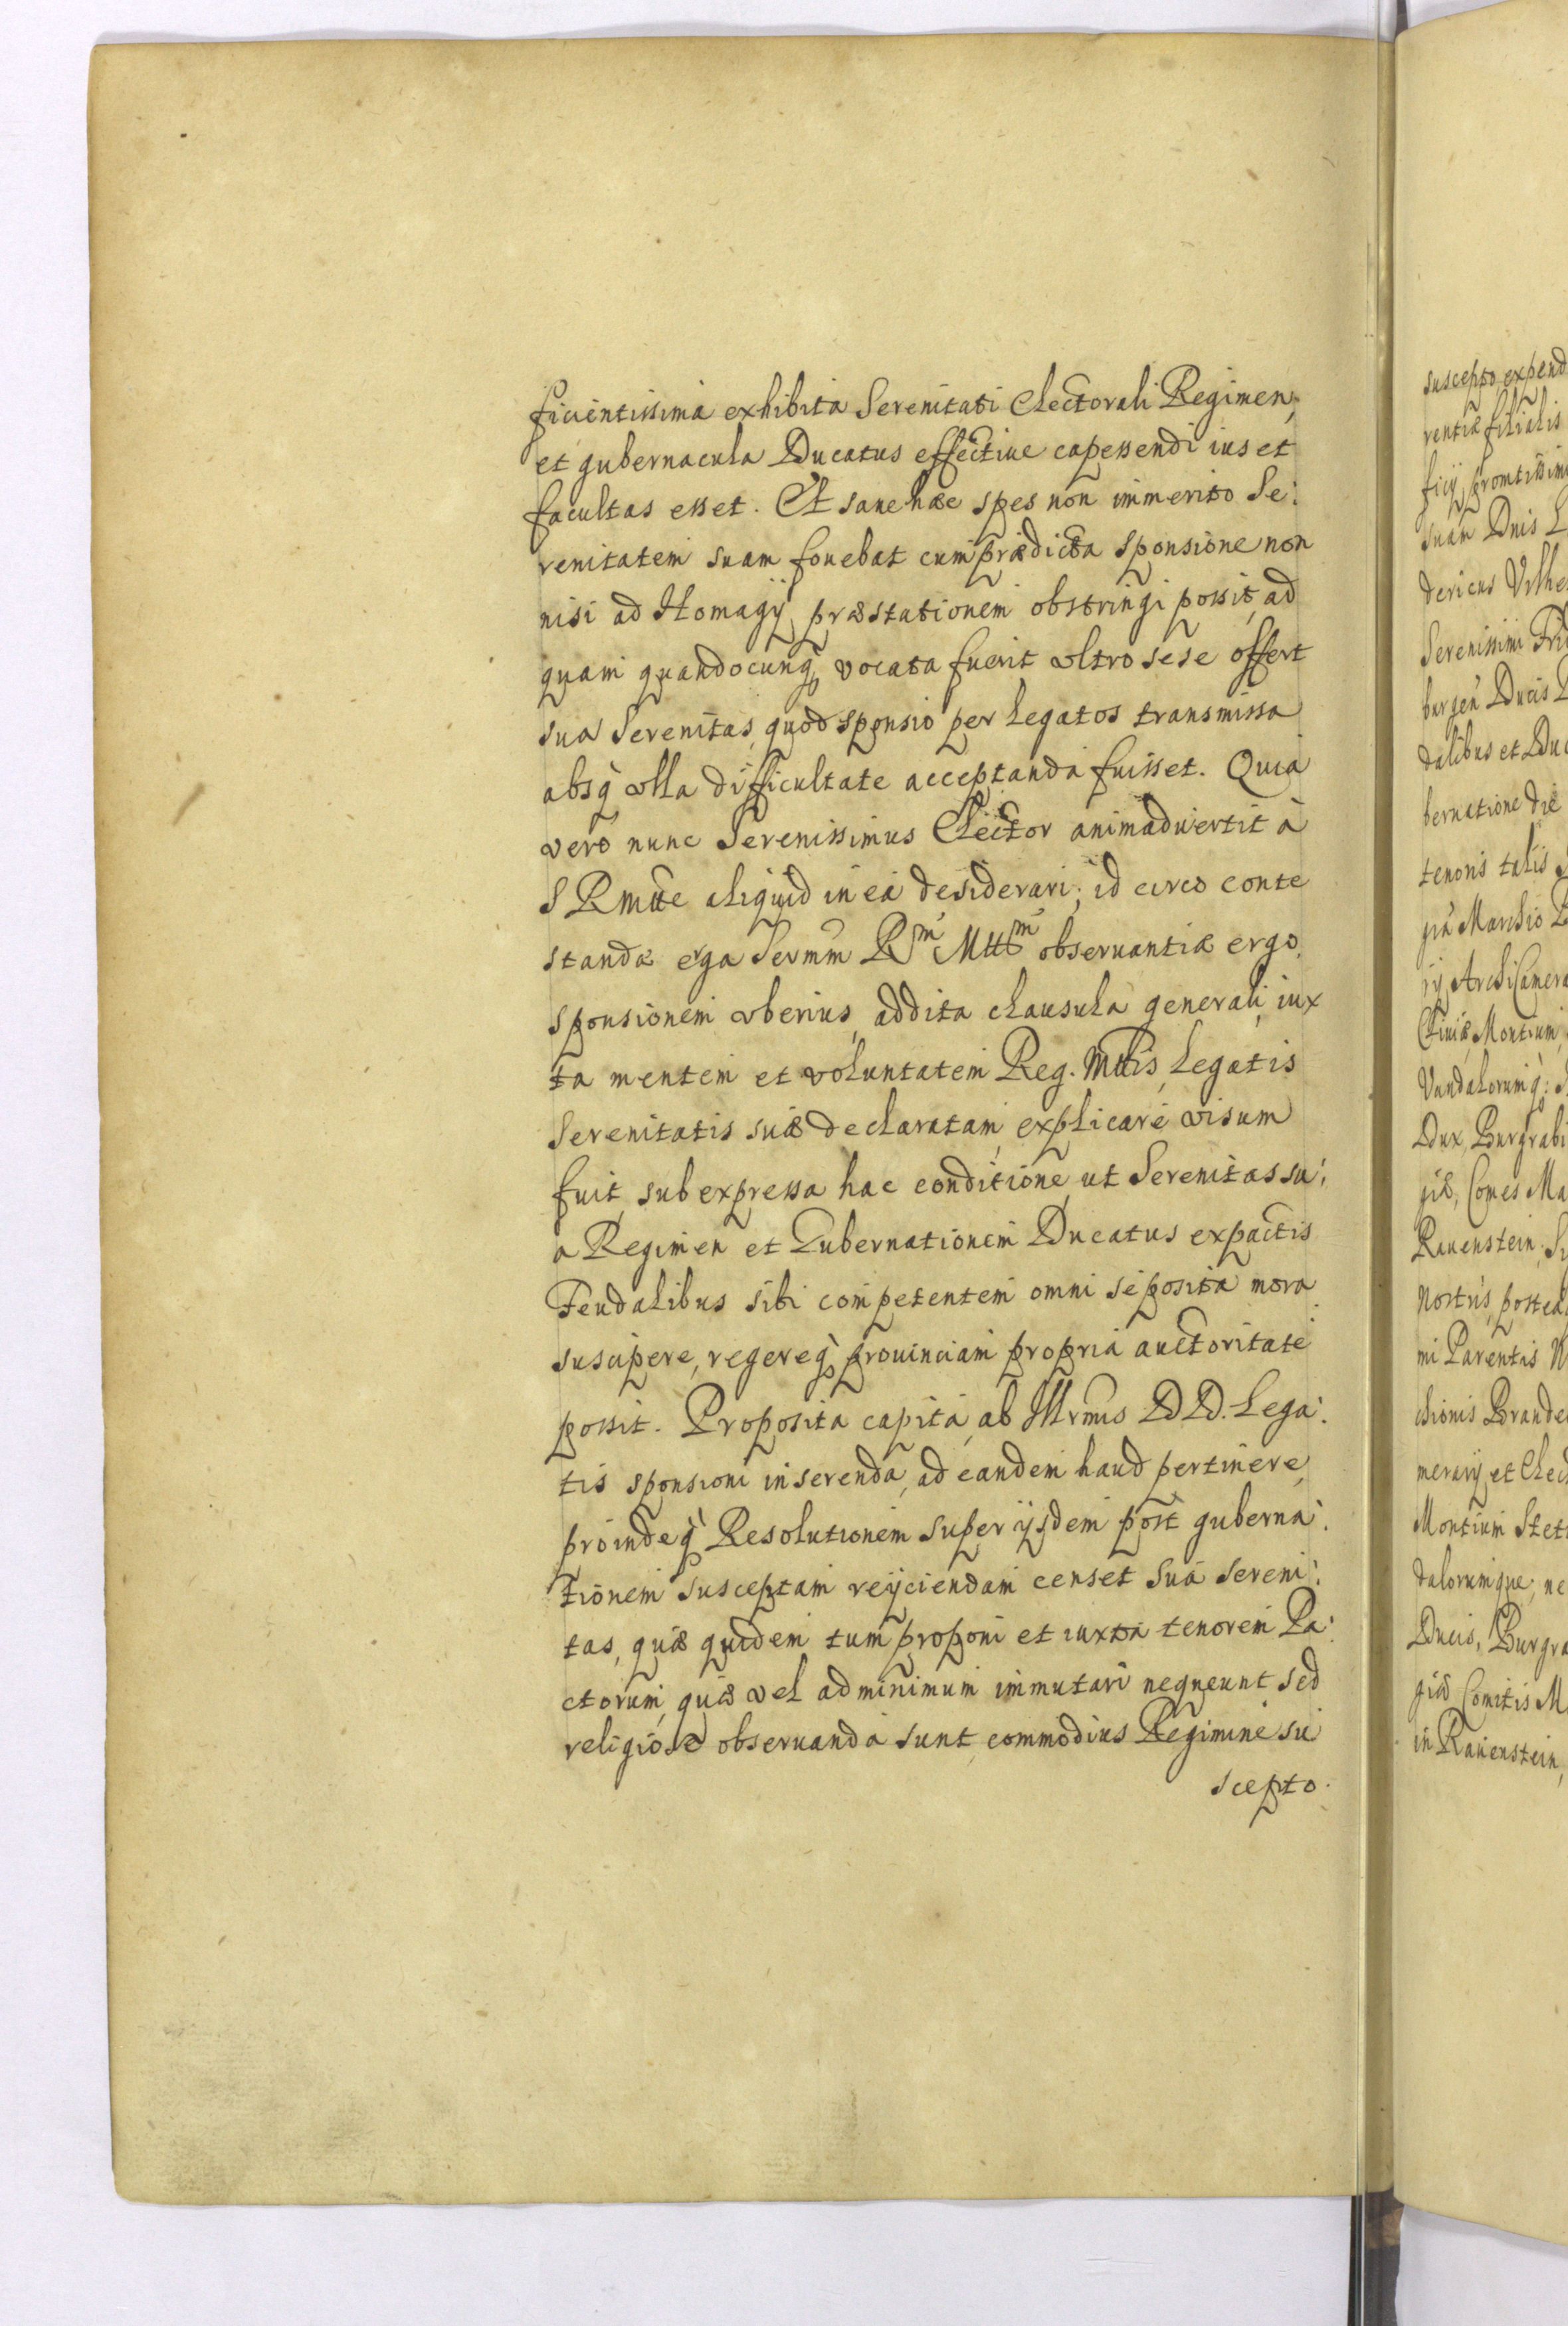 ficientissima exhibita Serenitati Electorali Regimen,
et gubernacula Ducatus effectiue capessendi ius et
facultas esset. Et sane hæc spes non immerito Se:
renitatem suam fouebat cum prædicta sponsione non
nisi ad Homagij præstationem obstringi possit, ad
quam quandocunq, vocata fuerit vltro sese offert
sua Serenitas, quod sponsio per Legatos transmissa
absq vlla difficultate acceptanda fuisset. Quia
vero nunc Serenissimus Elector animaduertit à
S R Mtte aliquid in ea desiderari; id circo conte
standæ erga Sermm Rm Mttm obseruantiæ ergo
sponsionem vberius, addita clausula generali, iux
ta mentem et voluntatem Reg. Mttis, Legatis
Serenitatis suæ declaratam explicare visum
fuit, sub expressa hac conditione, ut Serenitas su:
a Regimen et Gubernationem Ducatus ex pactis
Feudalibus sibi competentem omni seposita mora
suscipere, regereq prouinciam propria auctoritate
possit. Proposita capita, ab Illrmis D D. Lega:
tis sponsioni inserenda, ad eandem haud pertinere,
proindeq Resolutionem super ijsdem post guberna:
tionem susceptam reijciendam censet sua Sereni:
tas, quæ quidem tum proponi et iuxta tenorem Pa:
ctorum, quæ vel ad minimum immutari nequeunt sed
religiose obseruanda sunt, commodius Regimine su
scepto.
suscepto, expend
rentiæ filialis
ficij promtissim
suam Dnis L
dericus Vilhe
Serenissimi Frid
burgen Ducis
dalibus et Duc
bernatione die
tenoris talis
gia Marchio B
rij Archi Camera
Cliuiæ Montium,
Vandalorumq:
Dux, Burgrabi
giæ, Comes Ma
Rauenstein.
Nostris, postea
mi Parentis
chionis Brande
merarij et Elec
Montium Steti
dalorumque, ne
Ducis, Burgra
giæ Comitis M
in Rauenstein,